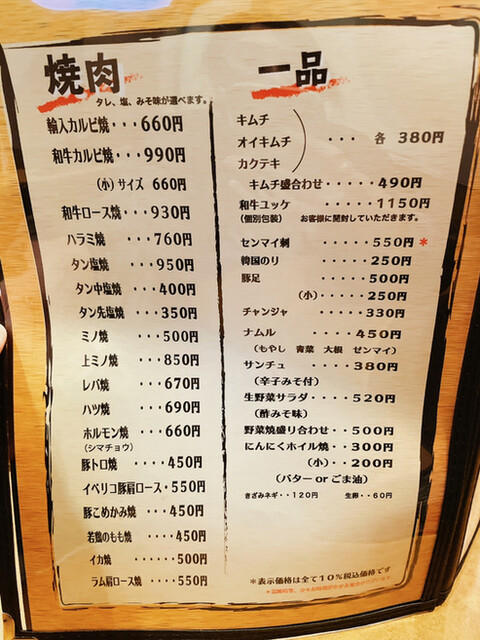 焼肉
タレ、塩、みそ味が選べます。
輸入カルビ焼・・・660円
和牛カルビ焼・・・990円
(小)サイズ 660円
和牛ロース焼・・・930円
ハラミ焼 ・・・760円
タン塩焼 ・・・950円
タン中塩焼 ・・・400円
タン先塩焼 ・・・350円
ミノ焼 ・・・500円
上ミノ焼 ・・・850円
レバ焼 ・・・670円
ハツ焼 ・・・690円
ホルモン焼 ・・・660円
(シマチョウ)
豚トロ焼 ・・・・450円
イベリコ豚肩ロース・550円
豚こめかみ焼・・・450円
若鶏のもも焼・・・・450円
イカ焼 ・・・・・500円
ラム肩ロース焼・・・・550円
一品
キムチ
オイキムチ ・・・ 各 380円
カクテキ
キムチ盛合わせ・・・・・490円
和牛ユッケ ・・・・・1150円
(個別包装) お客様に開封していただきます。
センマイ刺 ・・・・・550円*
韓国のり ・・・・・250円
豚足 ・・・・・500円
(小)・・・・250円
チャンジャ ・・・・・330円
ナムル ・・・・450円
(もやし 青菜 大根 センマイ)
サンチュ ・・・・380円
(辛子みそ付)
生野菜サラダ・・・・520円
(酢みそ味)
野菜焼盛り合わせ・・500円
にんにくホイル焼・・300円
(小)・・200円
(バター or ごま油)
きざみネギ・・120円 生卵・・60円
*表示価格は全て10%税込価格です